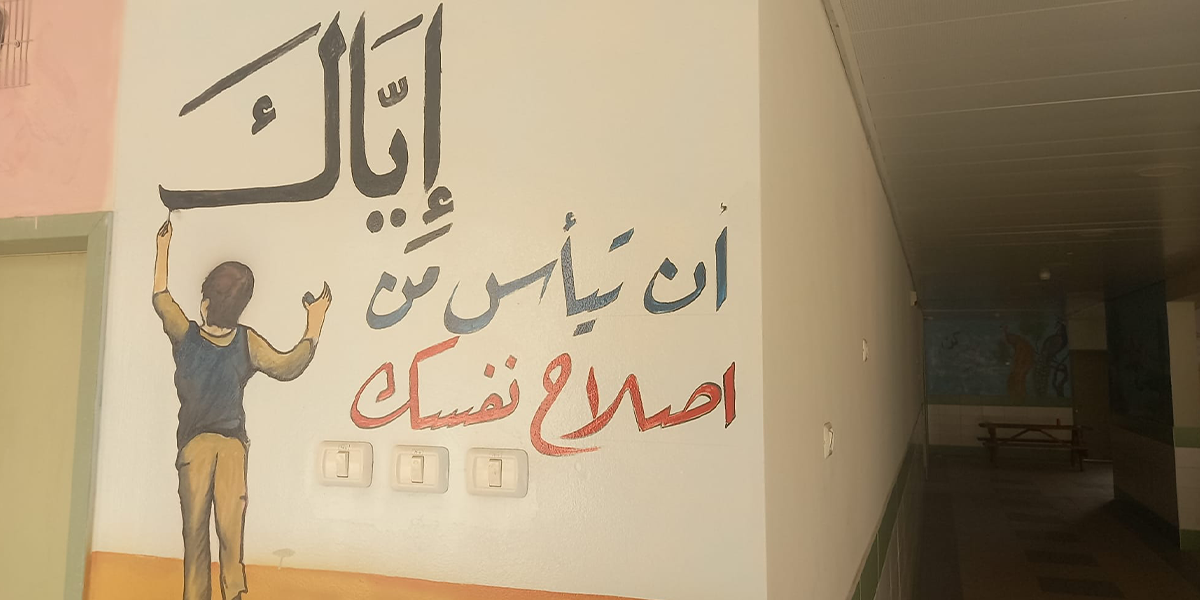 إيَّاكَ
أن تيأس مَن
اصلاح نفسك